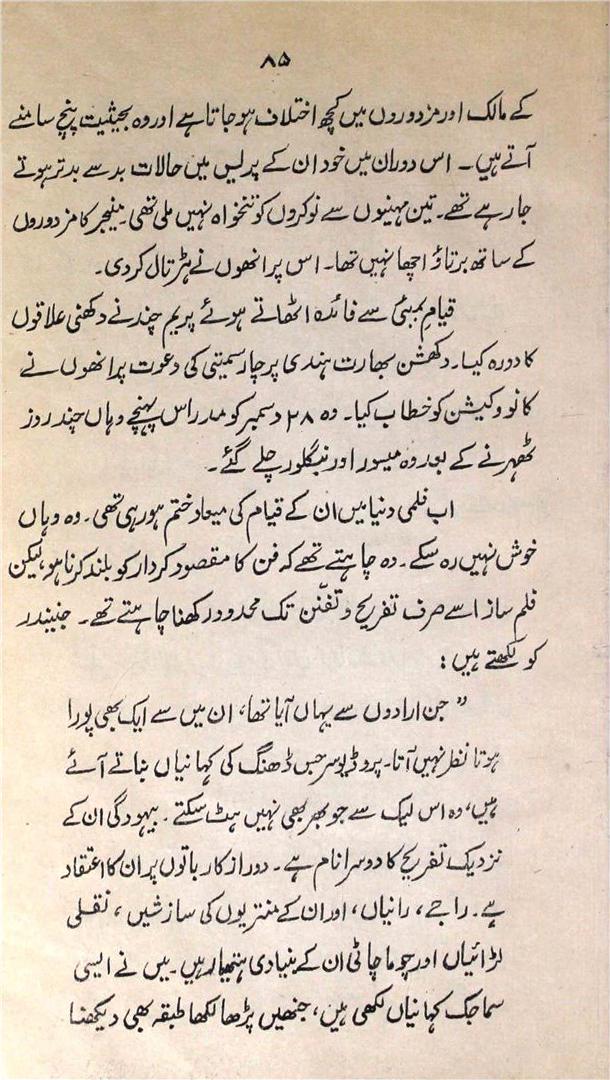 ۸۵
کے مالک اور مزدوروں میں کچھ اختلاف ہوجاتا ہے اور وہ بحیثیت پنچ سامنے
آتے ہیں۔ اس دوران میں خود ان کے پریس میں حالات بد سے بدتر ہوتے
جارہے تھے۔ تین مہینوں سے نوکروں کو تنخواہ نہیں ملی تھی۔ مینیجر کا مزدوروں
کے ساتھ برتاؤ اچھا نہیں تھا۔ اس پر انھوں نے ہڑتال کردی۔
قیام بمبئی سے فائدہ اٹھاتے ہوئے پریم چند نے دکھنی علاقوں
کا دورہ کیا۔ دکھشن بھارت ہندی پرچار سمیتی کی دعوت پر انھوں نے
کانووکیشن کو خطاب کیا۔ وہ ۲۸ دسمبر کو مدراس پہنچے وہاں چند روز
ٹھہرنے کے بعد وہ میسور اور بنگلور چلے گئے۔
اب فلمی دنیا میں ان کے قیام کی میعاد ختم ہورہی تھی۔ وہ وہاں
خوش نہیں رہ سکے۔ وہ چاہتے تھے کہ فن کا مقصود کردار کو بلند کرنا ہو، لیکن
فلم ساز اسے صرف تفریح و تفنّن تک محدود رکھنا چاہتے تھے۔ جنیندر
کو لکھتے ہیں :
”جن ارادوں سے یہاں آیا تھا، ان میں سے ایک بھی پورا
ہوتا نظر نہیں آتا۔ پروڈیوسر جس ڈھنگ کی کہانیاں بناتے آئے
ہیں، وہ اس لیک سے جو بھر بھی نہیں ہٹ سکتے۔ بیہودگی ان کے
نزدیک تفریح کا دوسرا نام ہے۔ دور ازکار باتوں پر ان کا اعتقاد
ہے۔ راجے، رانیاں، اور ان کے منتریوں کی سازشیں، نقلی
لڑائیاں اور چوما چاٹی ان کے بنیادی ہتھیار ہیں۔ میں نے ایسی
سماجک کہانیاں لکھی ہیں، جنھیں پڑھا لکھا طبقہ بھی دیکھنا